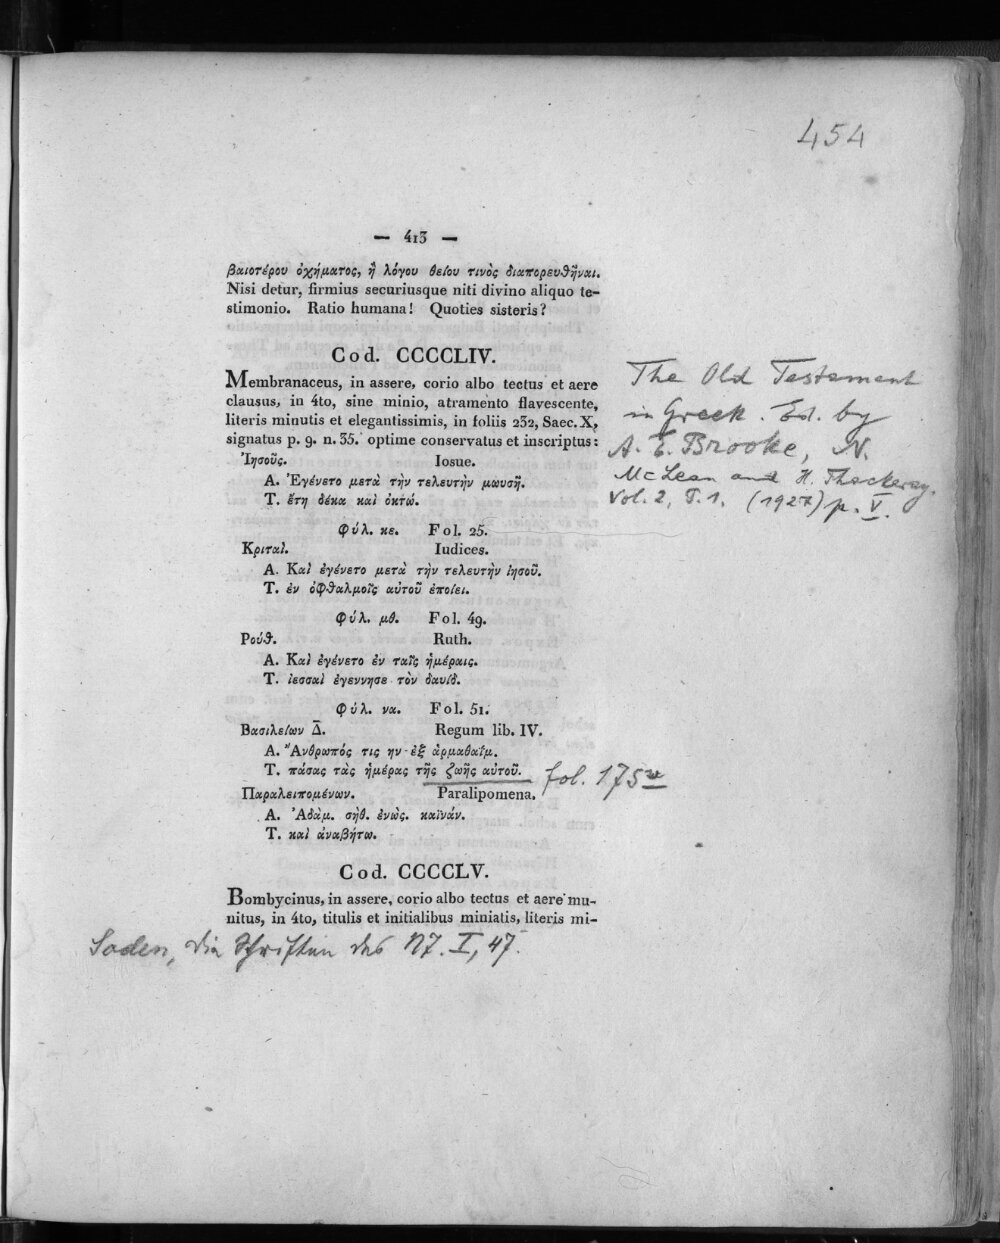 454
— 413 —
βαιοτέρου ὀχήματος, ἢ λόγου θείου τινὸς διαπορευθῆναι.
Nisi detur, firmius securiusque niti divino aliquo te-
stimonio. Ratio humana! Quoties sisteris?
Cod. CCCCLIV.
Membranaceus, in assere, corio albo tectus et aere
clausus, in 4to, sine minio, atramento flavescente,
literis minutis et elegantissimis, in foliis 232, Saec. X,
signatus p. g. n. 35. optime conservatus et inscriptus:
Ἰησοῦς. Iosue.
Α. Ἐγένετο μετὰ τὴν τελευτὴν μωυσῆ.
Τ. ἔτη δέκα καὶ ὀκτώ.
Φύλ. κε. Fol. 25.
Κριταί. Iudices.
Α. Καὶ ἐγένετο μετὰ τὴν τελευτὴν ἰησοῦ.
Τ. ἐν ὀφθαλμοῖς αὐτοῦ ἐποίει.
Φύλ. μθ. Fol. 49.
Ρούθ. Ruth.
Α. Καὶ ἐγένετο ἐν ταῖς ἡμέραις.
Τ. ἰεσσαὶ ἐγέννησε τὸν δαυίδ.
Φύλ. να. Fol. 51.
Βασιλείων Δ̄. Regum lib. IV.
Α. Ἄνθρωπός τις ην ἐξ ἀρμαθαΐμ.
Τ. πάσας τὰς ἡμέρας τῆς ζωῆς αὐτοῦ. fol. 175v
Παραλειπομένων. Paralipomena.
Α. Ἀδὰμ. σὴθ. ἐνώς. καϊνάν.
Τ. καὶ ἀναβήτω.
Cod. CCCCLV.
Bombycinus, in assere, corio albo tectus et aere mu-
nitus, in 4to, titulis et initialibus miniatis, literis mi-
The Old Testament
in Greek. Ed. by
A. E. Brooke, N.
McLean and H. Thackeray.
Vol. 2, T. 1. (1927) p. V.
Soden, Die Schriften des NT. I, 47.